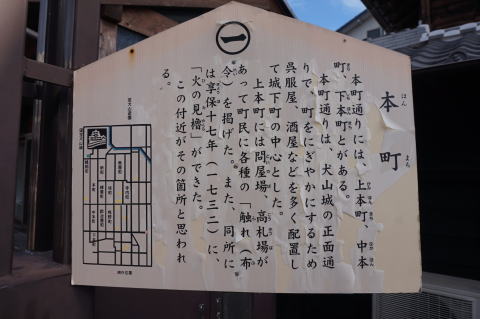 一
本町
ほん まち
本町通りには、上本町、中本
町、下本町とがある。
本町通りは、犬山城の正面通
りで、町をにぎやかにするため
呉服屋、酒屋などを多く配置し
て城下町の中心とした。
上本町には問屋場、高札場が
あって町民に各種の「触れ(布
令)を掲げた。また、同所に
は享保十七年(一七三二)に、
「火の見櫓」ができた。
この付近がその箇所と思われ
る。